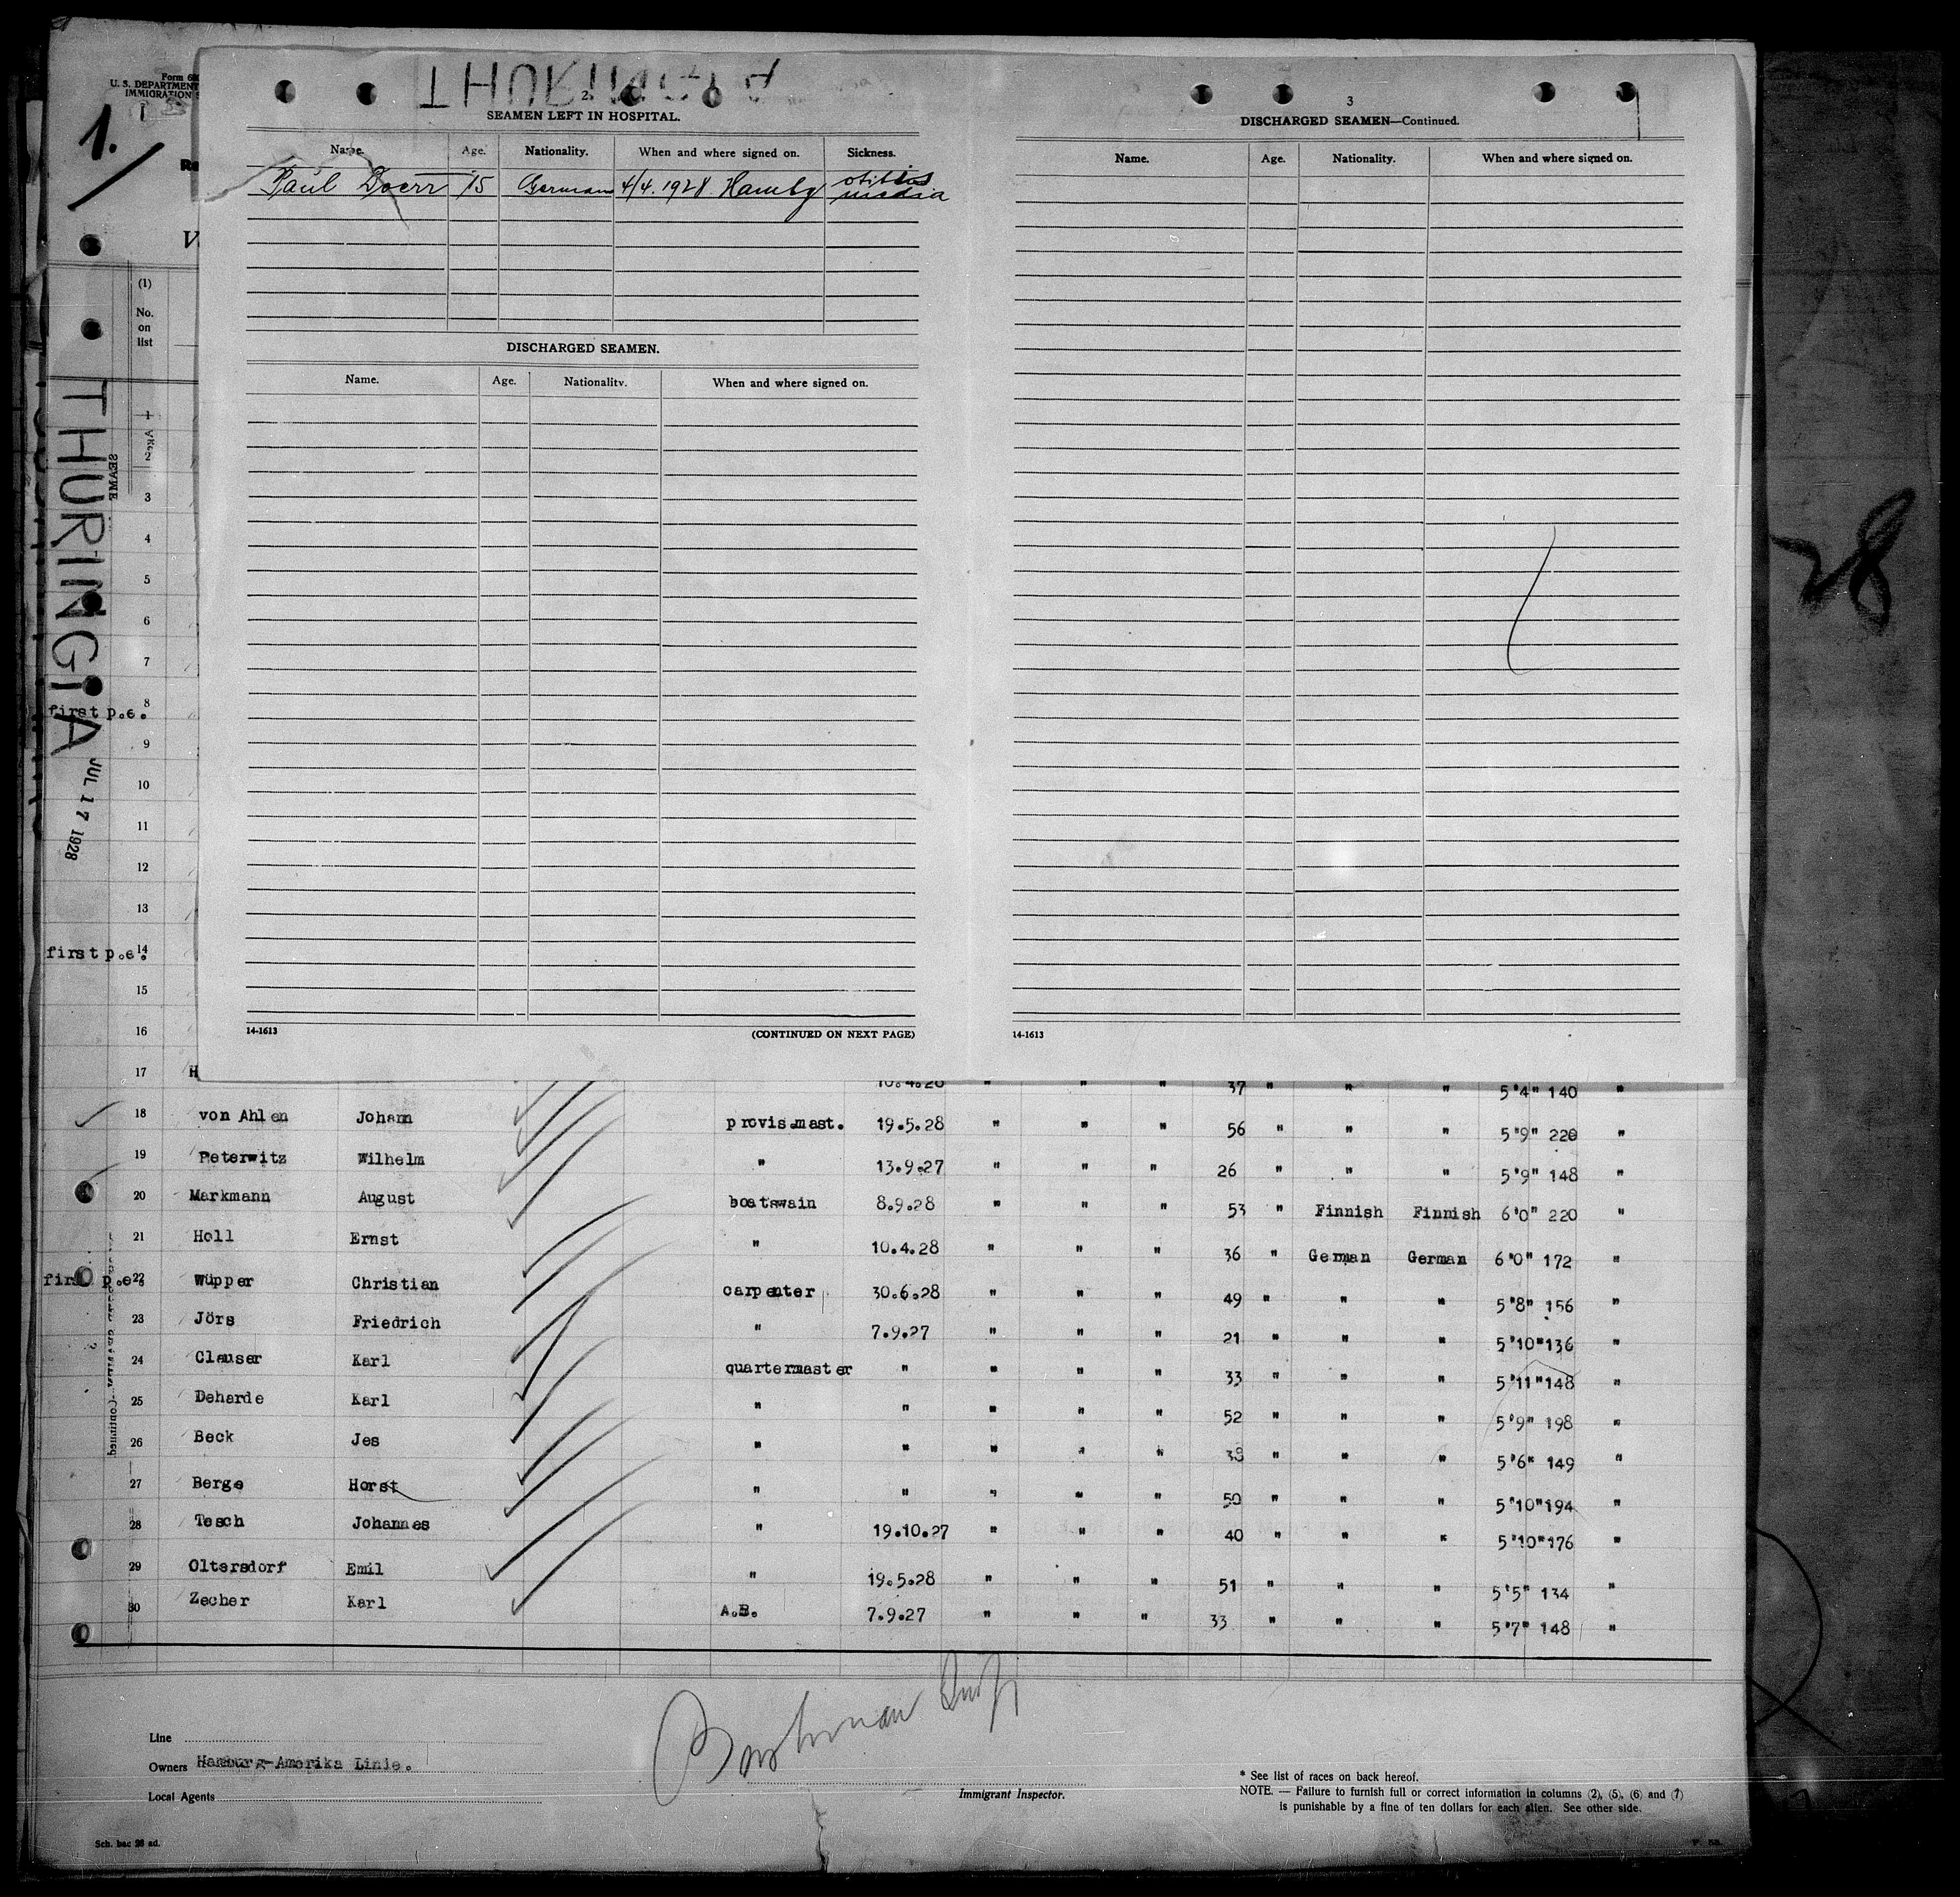 Form 680
U. S. DEPARTMENT
IMMIGRATION S
1.
V
(1)
No.
on
list
THURINGIA
JUL 17 1928
THURINGIA
2
SEAMEN LEFT IN HOSPITAL.
Name. Age. Nationality. When and where signed on. Sickness.
Paul Doerr 15 German 4/4. 1928 Hambg otitis media
DISCHARGED SEAMEN.
Name. Age. Nationality. When and where signed on.
14-1613 (CONTINUED ON NEXT PAGE)
3
DISCHARGED SEAMEN—Continued.
Name. Age. Nationality. When and where signed on.
14-1613
28
1
2
3
4
5
6
7
8
first p.e.
9
10
11
12
13
first p.e. 14
15
16
17 H 10.4.28 " " " 37 " " " 5'4" 140 "
18 von Ahlen Johann provis.mast. 19.5.28 " " " 56 " " " 5'9" 220 "
19 Peterwitz Wilhelm " 13.9.27 " " " 26 " " " 5'9" 148 "
20 Markmann August boatswain 8.9.28 " " " 53 " Finnish Finnish 6'0" 220 "
21 Holl Ernst " 10.4.28 " " " 36 " German German 6'0" 172 "
first p.e. 22 Wüpper Christian carpenter 30.6.28 " " " 49 " " " 5'8" 156 "
23 Jörs Friedrich " 7.9.27 " " " 21 " " " 5'10" 136 "
24 Clauser Karl quartermaster " " " " 33 " " " 5'11" 148 "
25 Deharde Karl " " " " " 52 " " " 5'9" 198 "
26 Beck Jes " " " " " 38 " " " 5'6" 149 "
27 Berge Horst " " " " " 50 " " " 5'10" 194 "
28 Tesch Johannes " 19.10.27 " " " 40 " " " 5'10" 176 "
29 Oltersdorf Emil " 19.5.28 " " " 51 " " " 5'5" 134 "
30 Zecher Karl A.B. 7.9.27 " " " 33 " " " 5'7" 148 "
Line
Owners Hamburg-Amerika Linie.
Local Agents
Immigrant Inspector.
* See list of races on back hereof.
NOTE. — Failure to furnish full or correct information in columns (2), (5), (6) and (7)
is punishable by a fine of ten dollars for each alien. See other side.
Sch. bec 28 ad.